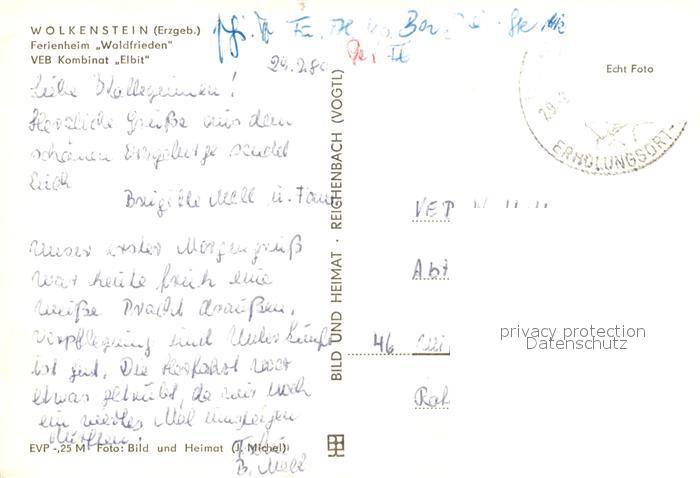 WOLKENSTEIN (Erzgeb.)
Ferienheim „Waldfrieden“
VEB Kombinat „Elbit“
29.2.80
Liebe Kolleginnen!
Herzliche Grüße aus dem
schönen Erzgebirge sendet
Euch
Brigitte Mell u. Fam
Unser erster Morgengruß
war heute früh eine
weiße Pracht draußen.
Verpflegung und Unterkunft
ist gut. Die Herfahrt war
etwas getrübt, da wir noch
ein viertes Mal umsteigen
mußten.
B. Mell
EVP -,25 M Foto: Bild und Heimat (J. Michel)
BILD UND HEIMAT · REICHENBACH (VOGTL)
Echt Foto
29.2
ERHOLUNGSORT
VEP
Abt
46
privacy protection
Datenschutz